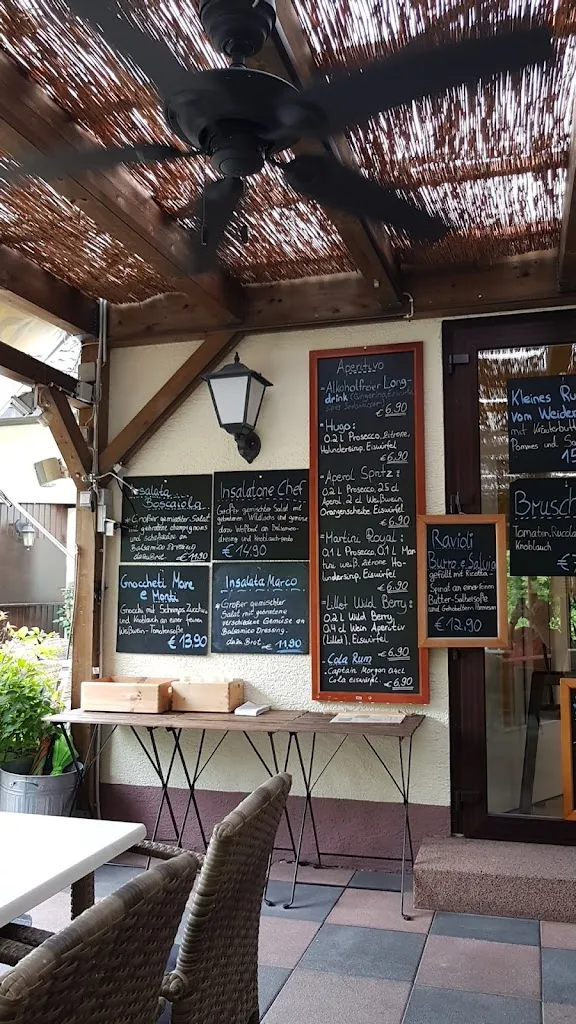 Insalata
Boscaiola
Großer gemischter Salat
champignons
Balsamico Dressing
dazu Brot € 11.90
Insalatone Chef
Großer gemischter Salat mit
gebratenem
dazu
dressing und Knoblauch
€ 14.90
Gnocchetti Mare
e Monti
Gnocchi mit Schrimps, Zucchini
und Knoblauch an einer feinen
Weißwein-Tomatensoße
€ 13.90
Insalata Marco
Großer gemischter
Salat mit gebratene
verschiedene Gemüse an
Balsamico Dressing.
dazu Brot € 11.90
Aperitivo
-Alkoholfreier Long-
drink
€ 6.90
-Hugo:
0.2 l Prosecco, Zitrone,
Holundersirup, Eiswürfel
€ 6.90
-Aperol Spritz:
Aperol
Orangenscheibe, Eiswürfel
€ 6.90
-Martini Royal:
0.1 l Prosecco, 0.1 l Mar-
tini weiß, Zitrone, Ho-
lundersirup, Eiswürfel.
€ 6.90
-Lillet Wild Berry:
0.2 l Wild Berry
Wein Aperitiv
(Lillet), Eiswürfel
€ 6.90
-Cola Rum
Captain Morgan 0.4cl
Cola eiswürfel. € 6.90
Ravioli
Burro e Salvia
gefüllt mit Ricotta -
Spinat an einer feinen
Butter-Salbeisoße
und Gehobeltem Parmesan
€ 12.90
Kleines Ru
vom Weider
mit Kräuterbutt
Pommes und Sa
15
Brusch
Tomaten, Rucola
Knoblauch
€